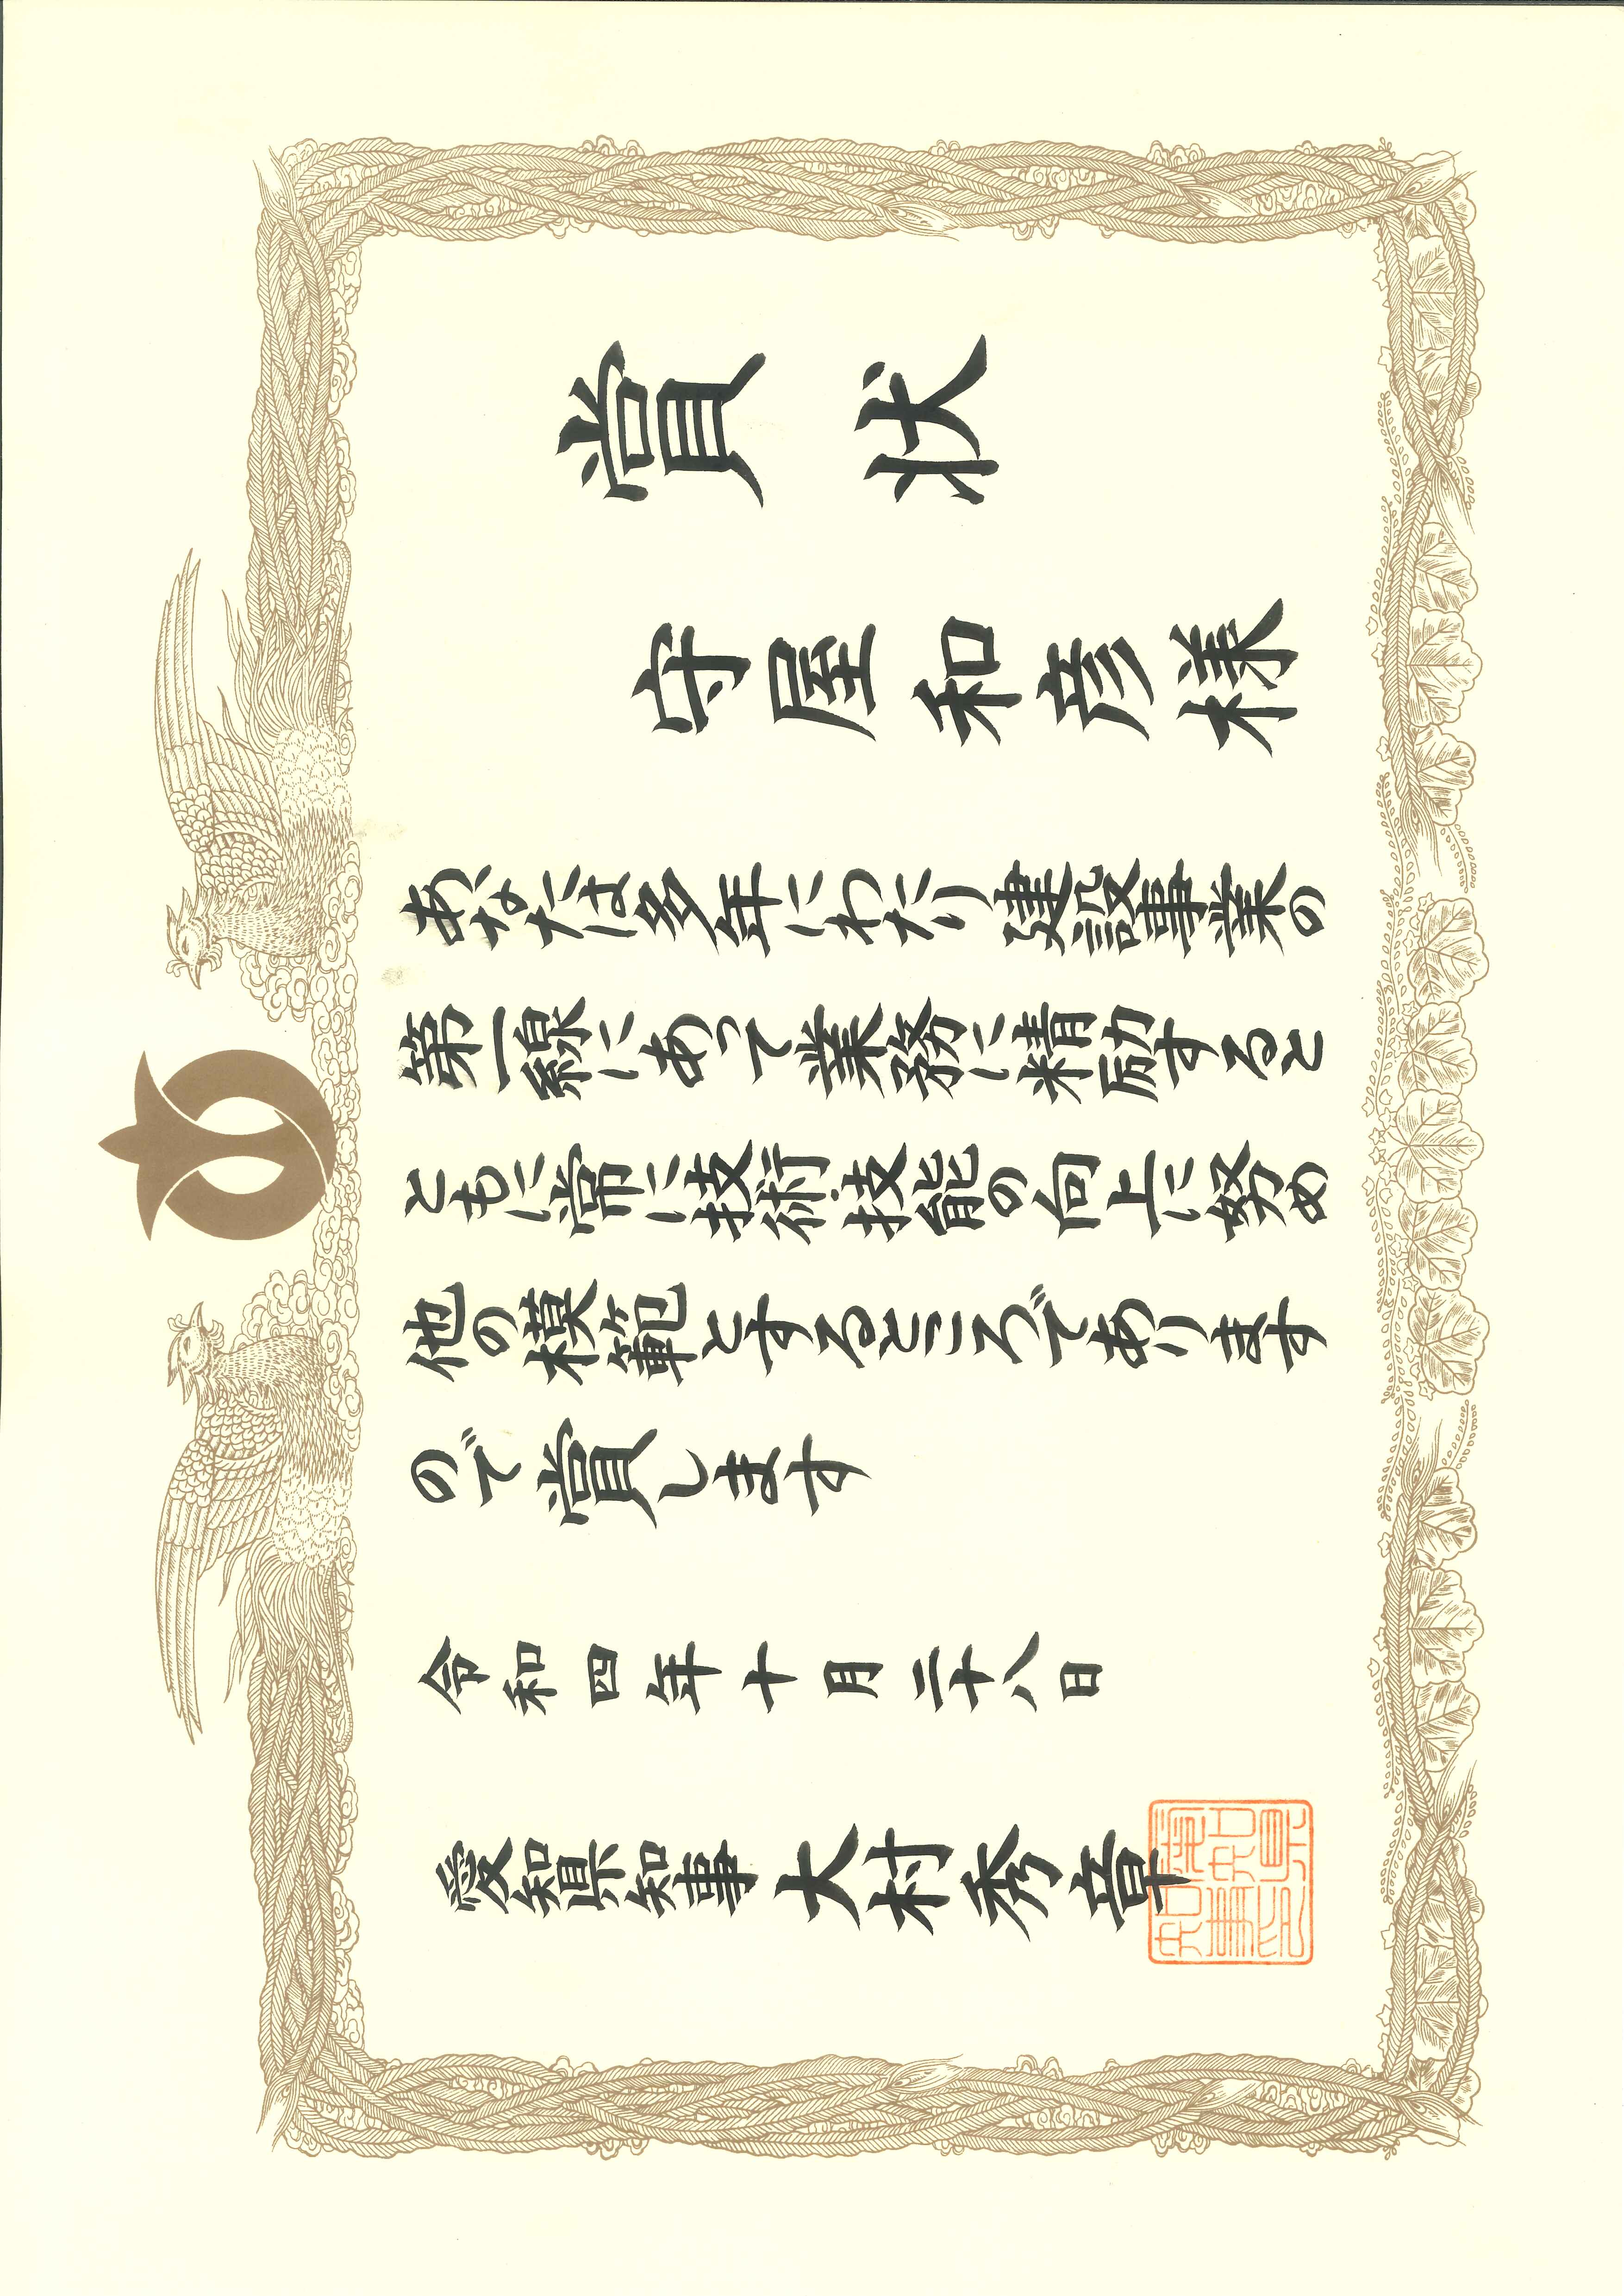 賞状
守屋和彦様
あなたは多年にわたり建設事業の
第一線にあって業務に精励すると
ともに常に技術技能の向上に努め
他の模範とするところであります
ので賞します
令和四年十月二十八日
愛知県知事 大村秀章